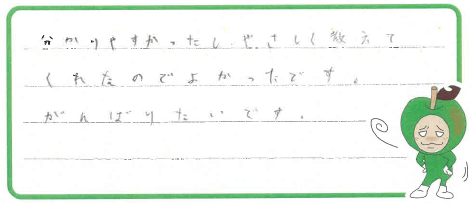 分かりやすかったし、やさしく教えて
くれたのでよかったです。
がんばりたいです。